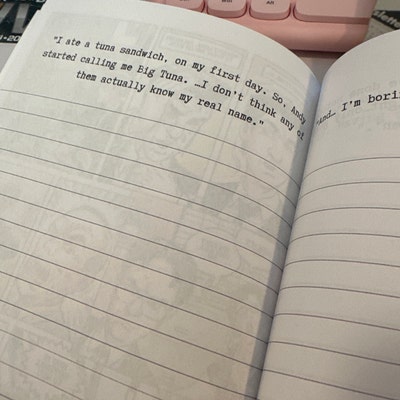 "I ate a tuna sandwich, on my first day. So, Andy
started calling me Big Tuna. …I don't think any of
them actually know my real name."
"And… I'm borin